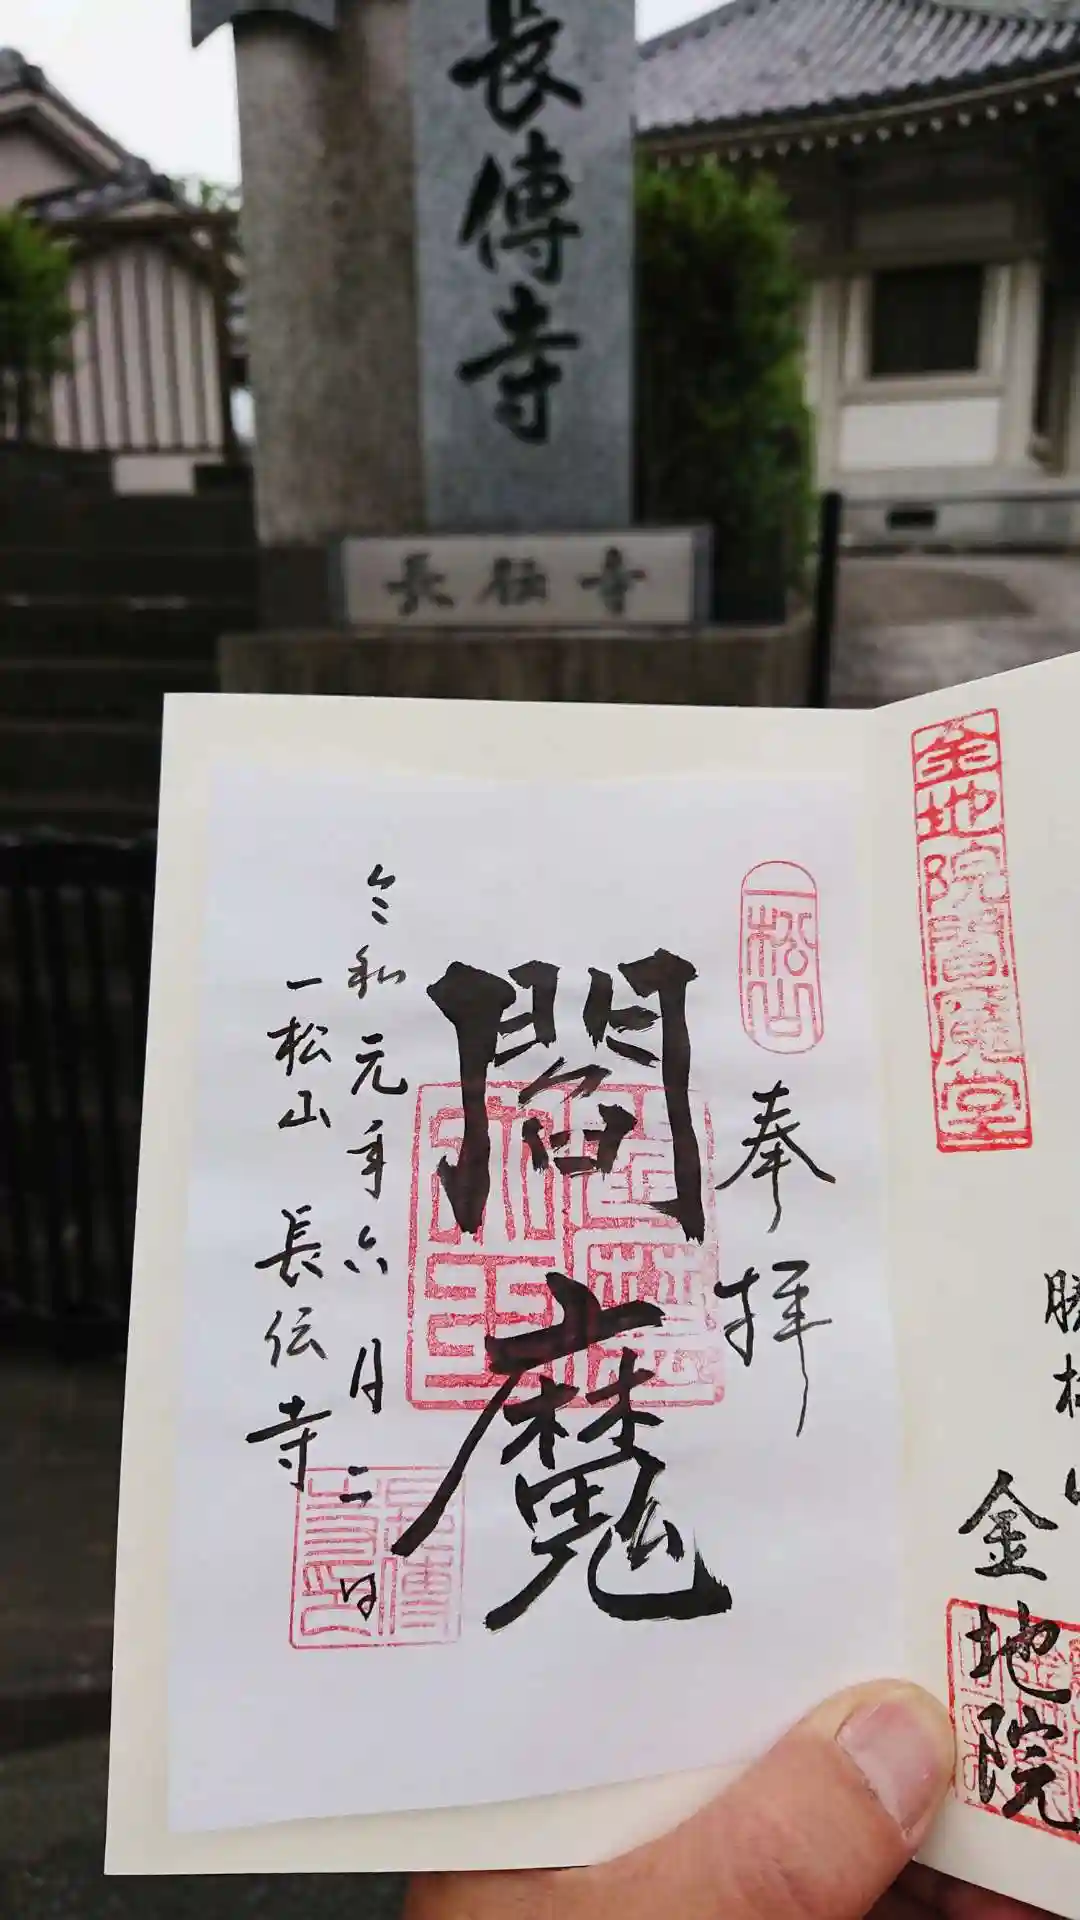 長傳寺
長伝寺
金地院閻魔堂
勝林山
金地院
一松山
奉拝
閻魔
令和元年六月二日
一松山 長伝寺